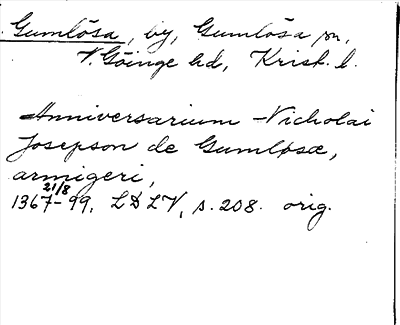 Gumlösa, by, Gumlösa sn,
V. Göinge hd, Krist. l.
Anniversarium Nicholai
Josepson de Gumløsæ,
armigeri,
21/8
1367-99. LDLV, s. 208. orig.